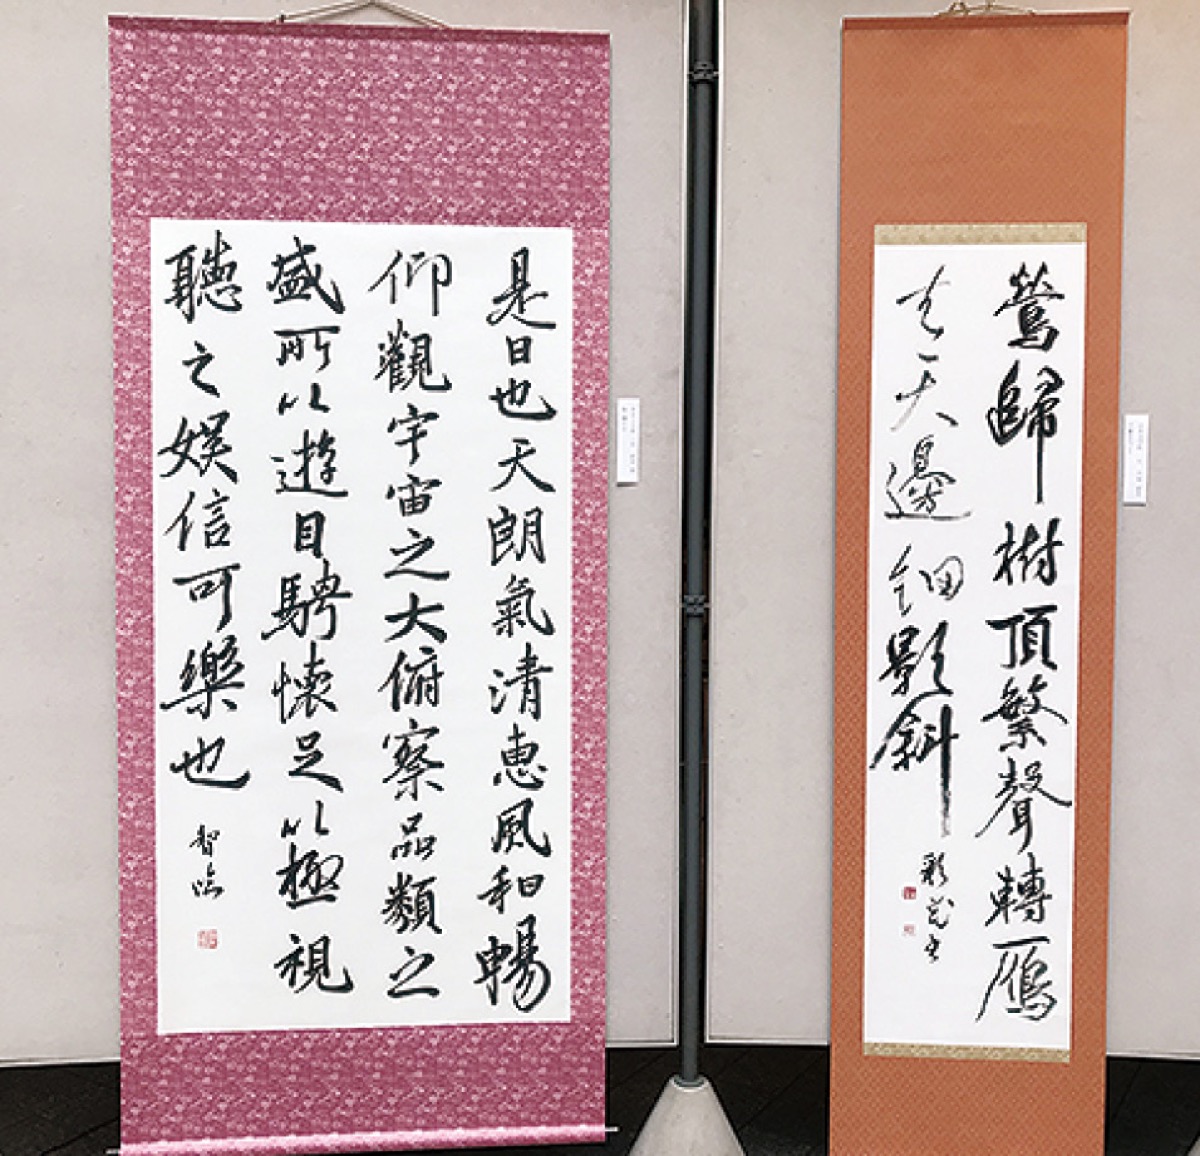 是日也天朗氣清惠風和暢
仰觀宇宙之大俯察品類之
盛所以遊目騁懷足以極視
聽之娯信可樂也
智臨
鶯歸樹頂繁聲轉雁
去天邊細影斜